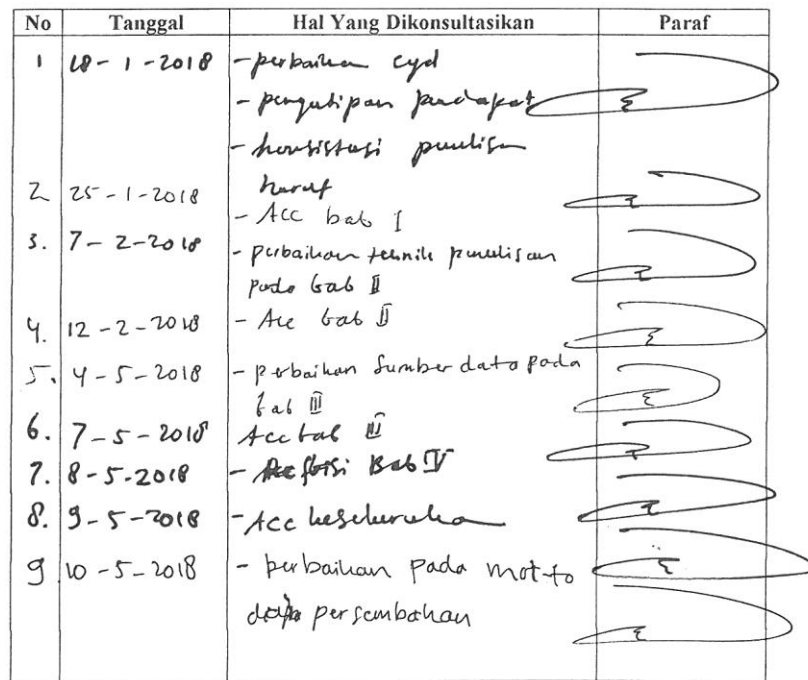 No Tanggal Hal Yang Dikonsultasikan Paraf
1 18-1-2018 - perbaikan eyd
- pengutipan pendapat
- konsistasi penulisan
huruf
2 25-1-2018 - Acc bab I
3. 7-2-2018 - perbaikan teknik penulisan
pada bab II
4. 12-2-2018 - Acc bab II
5. 4-5-2018 - perbaikan Sumber data pada
bab III
6. 7-5-2018 Acc bab III
7. 8-5-2018 - Bab IV
8. 9-5-2018 - Acc keseluruhan
9 10-5-2018 - perbaikan pada motto
persembahan